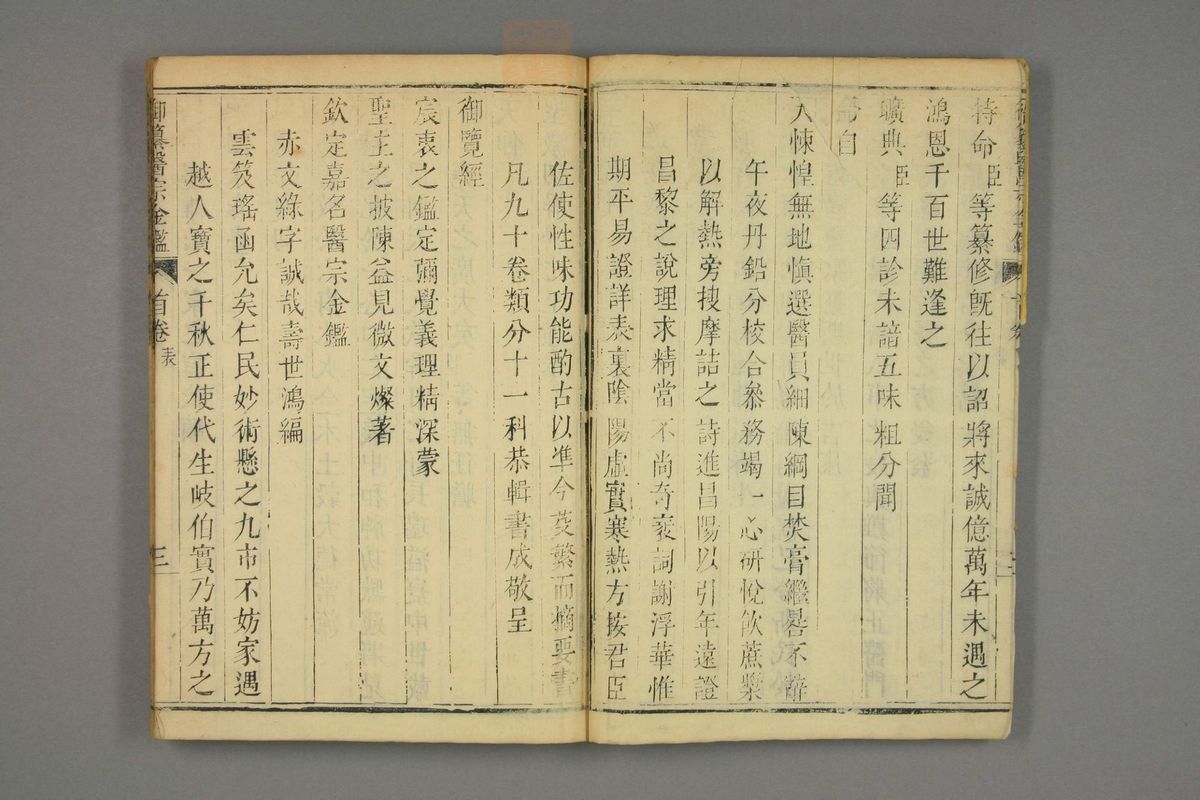 特命臣等纂修既往以詔將來誠億萬年未遇之
鴻恩千百世難逢之
曠典臣等四診未諳五味粗分聞
命自
天悚惶無地慎選醫員細陳綱目焚膏繼晷不辭
午夜丹鉛分校合參務竭一心研悅飲蔗漿
以解熱旁搜摩詰之詩進昌陽以引年遠證
昌黎之說理求精當不尚奇衺詞謝浮華惟
期平易證詳表裏陰陽虛實寒熱方按君臣
佐使性味功能酌古以凖今芟繁而摘要書
凡九十卷類分十一科恭輯書成敬呈
御覽經
宸衷之鑑定彌覺義理精深蒙
聖主之披陳益見微文燦著
欽定嘉名醫宗金鑑
赤文綠字誠哉壽世鴻編
雲笈瑤函允矣仁民妙術懸之九市不妨家遇
越人寶之千秋正使代生岐伯實乃萬方之
御纂醫宗金鑑 首卷 表 三